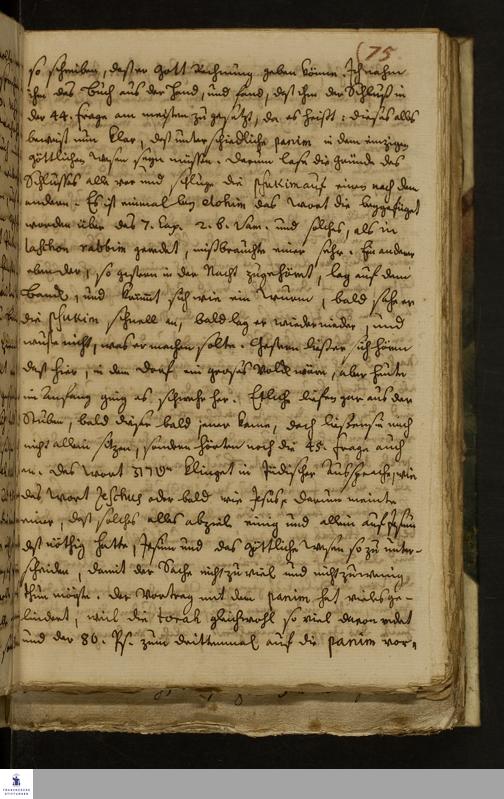 75
so schreiben, daß er Gott Rechnung geben könne. Ich nahm
ihm das Buch aus der Hand, und fand, daß ihm der Schluß in
der 44. Frage am meisten zu gesetzt, da es heißt: dieses alles
beweist nun klar, daß unterschiedliche panim in dem einzigen
göttlichen Wesen seyn müssen. Darum lase die Gründe des
Schlusses alle vor und schluge die psukim auf einen nach dem
andern. Es ist einmal bey elohim das Wort die
worden über das 7. Cap. 2. b. Sam. und solches, als in
laschon rabbim geredet, mißbrauchte einer sehr. Ein anderer
aber der, so gestern in der Nacht zugehöret, lag auf dem
Bank, und krümmt sich wie ein Wurm, bald sahe er
die psukim schnell an, bald lag er wieder nieder, und
wuste nicht, was er machen solte. Gestern ließen sich hören
daß hier, in dem Dorf ein groses Volck wäre, aber heute
im Anfang ging es schwehr her. Etliche liefen gar aus der
Stuben, bald dieser bald jener kame, doch ließen sie mich
nicht allein sitzen, sondern hörten noch die 45. Frage auch
an. Das Wort klinget in Jüdischer Aussprache, wie
das Wort Jeschuch oder bald wie Jesus. Darum meinte
einer, daß solches alles abziele einig und allein auf Jesum
daß nöthig hatte, Jesum und das göttliche Wesen so zu unter-
scheiden, damit der Sache nicht zu viel und nicht zu wenig
thun möchte. Der Vortrag mit dem panim hat vieles ge-
lindert, weil die torah gleichwohl so viel davon redet
und der 80. Ps. zum drittenmal auf die panim vor-
FRANCKESCHE STIFTUNGEN